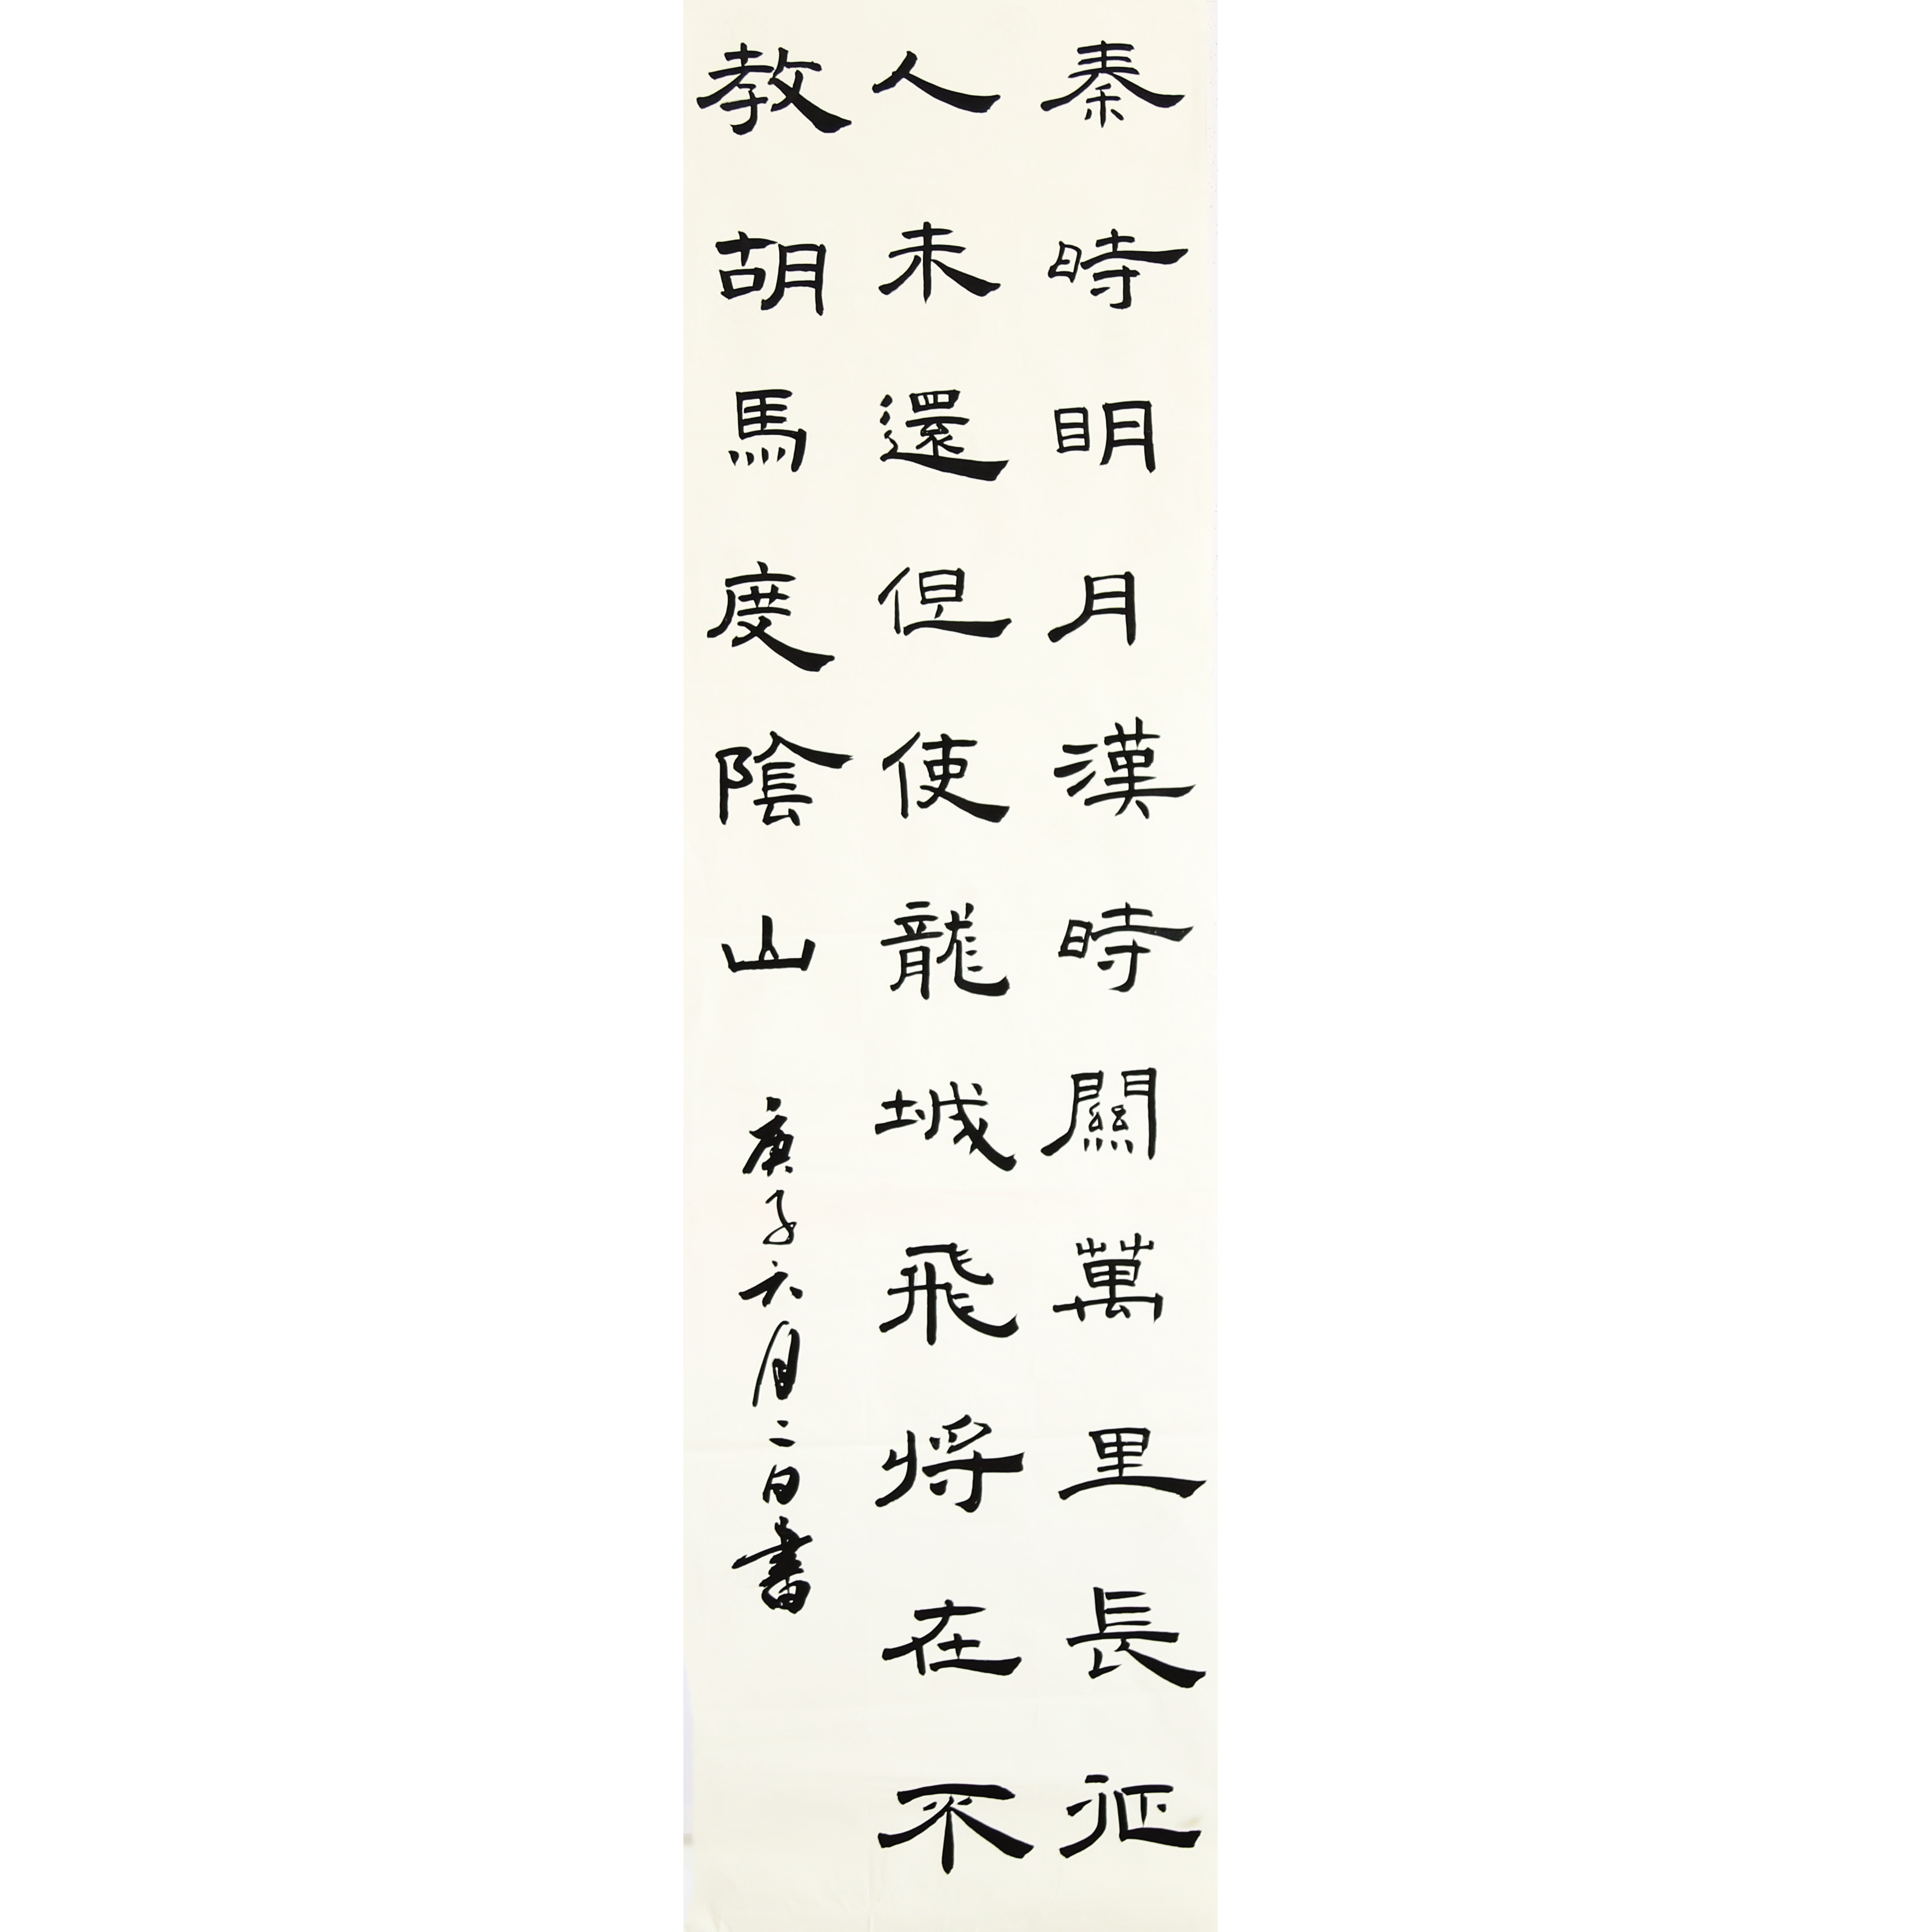 秦時明月漢時關萬里長征
人未還但使龍城飛將在不
教胡馬度陰山 庚子六月二白書